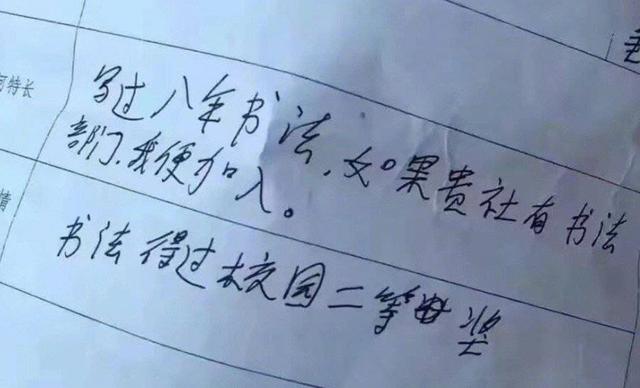 特长
写过八年书法,如果贵社有书法
部门,我便加入。
情
书法得过校园二等奖